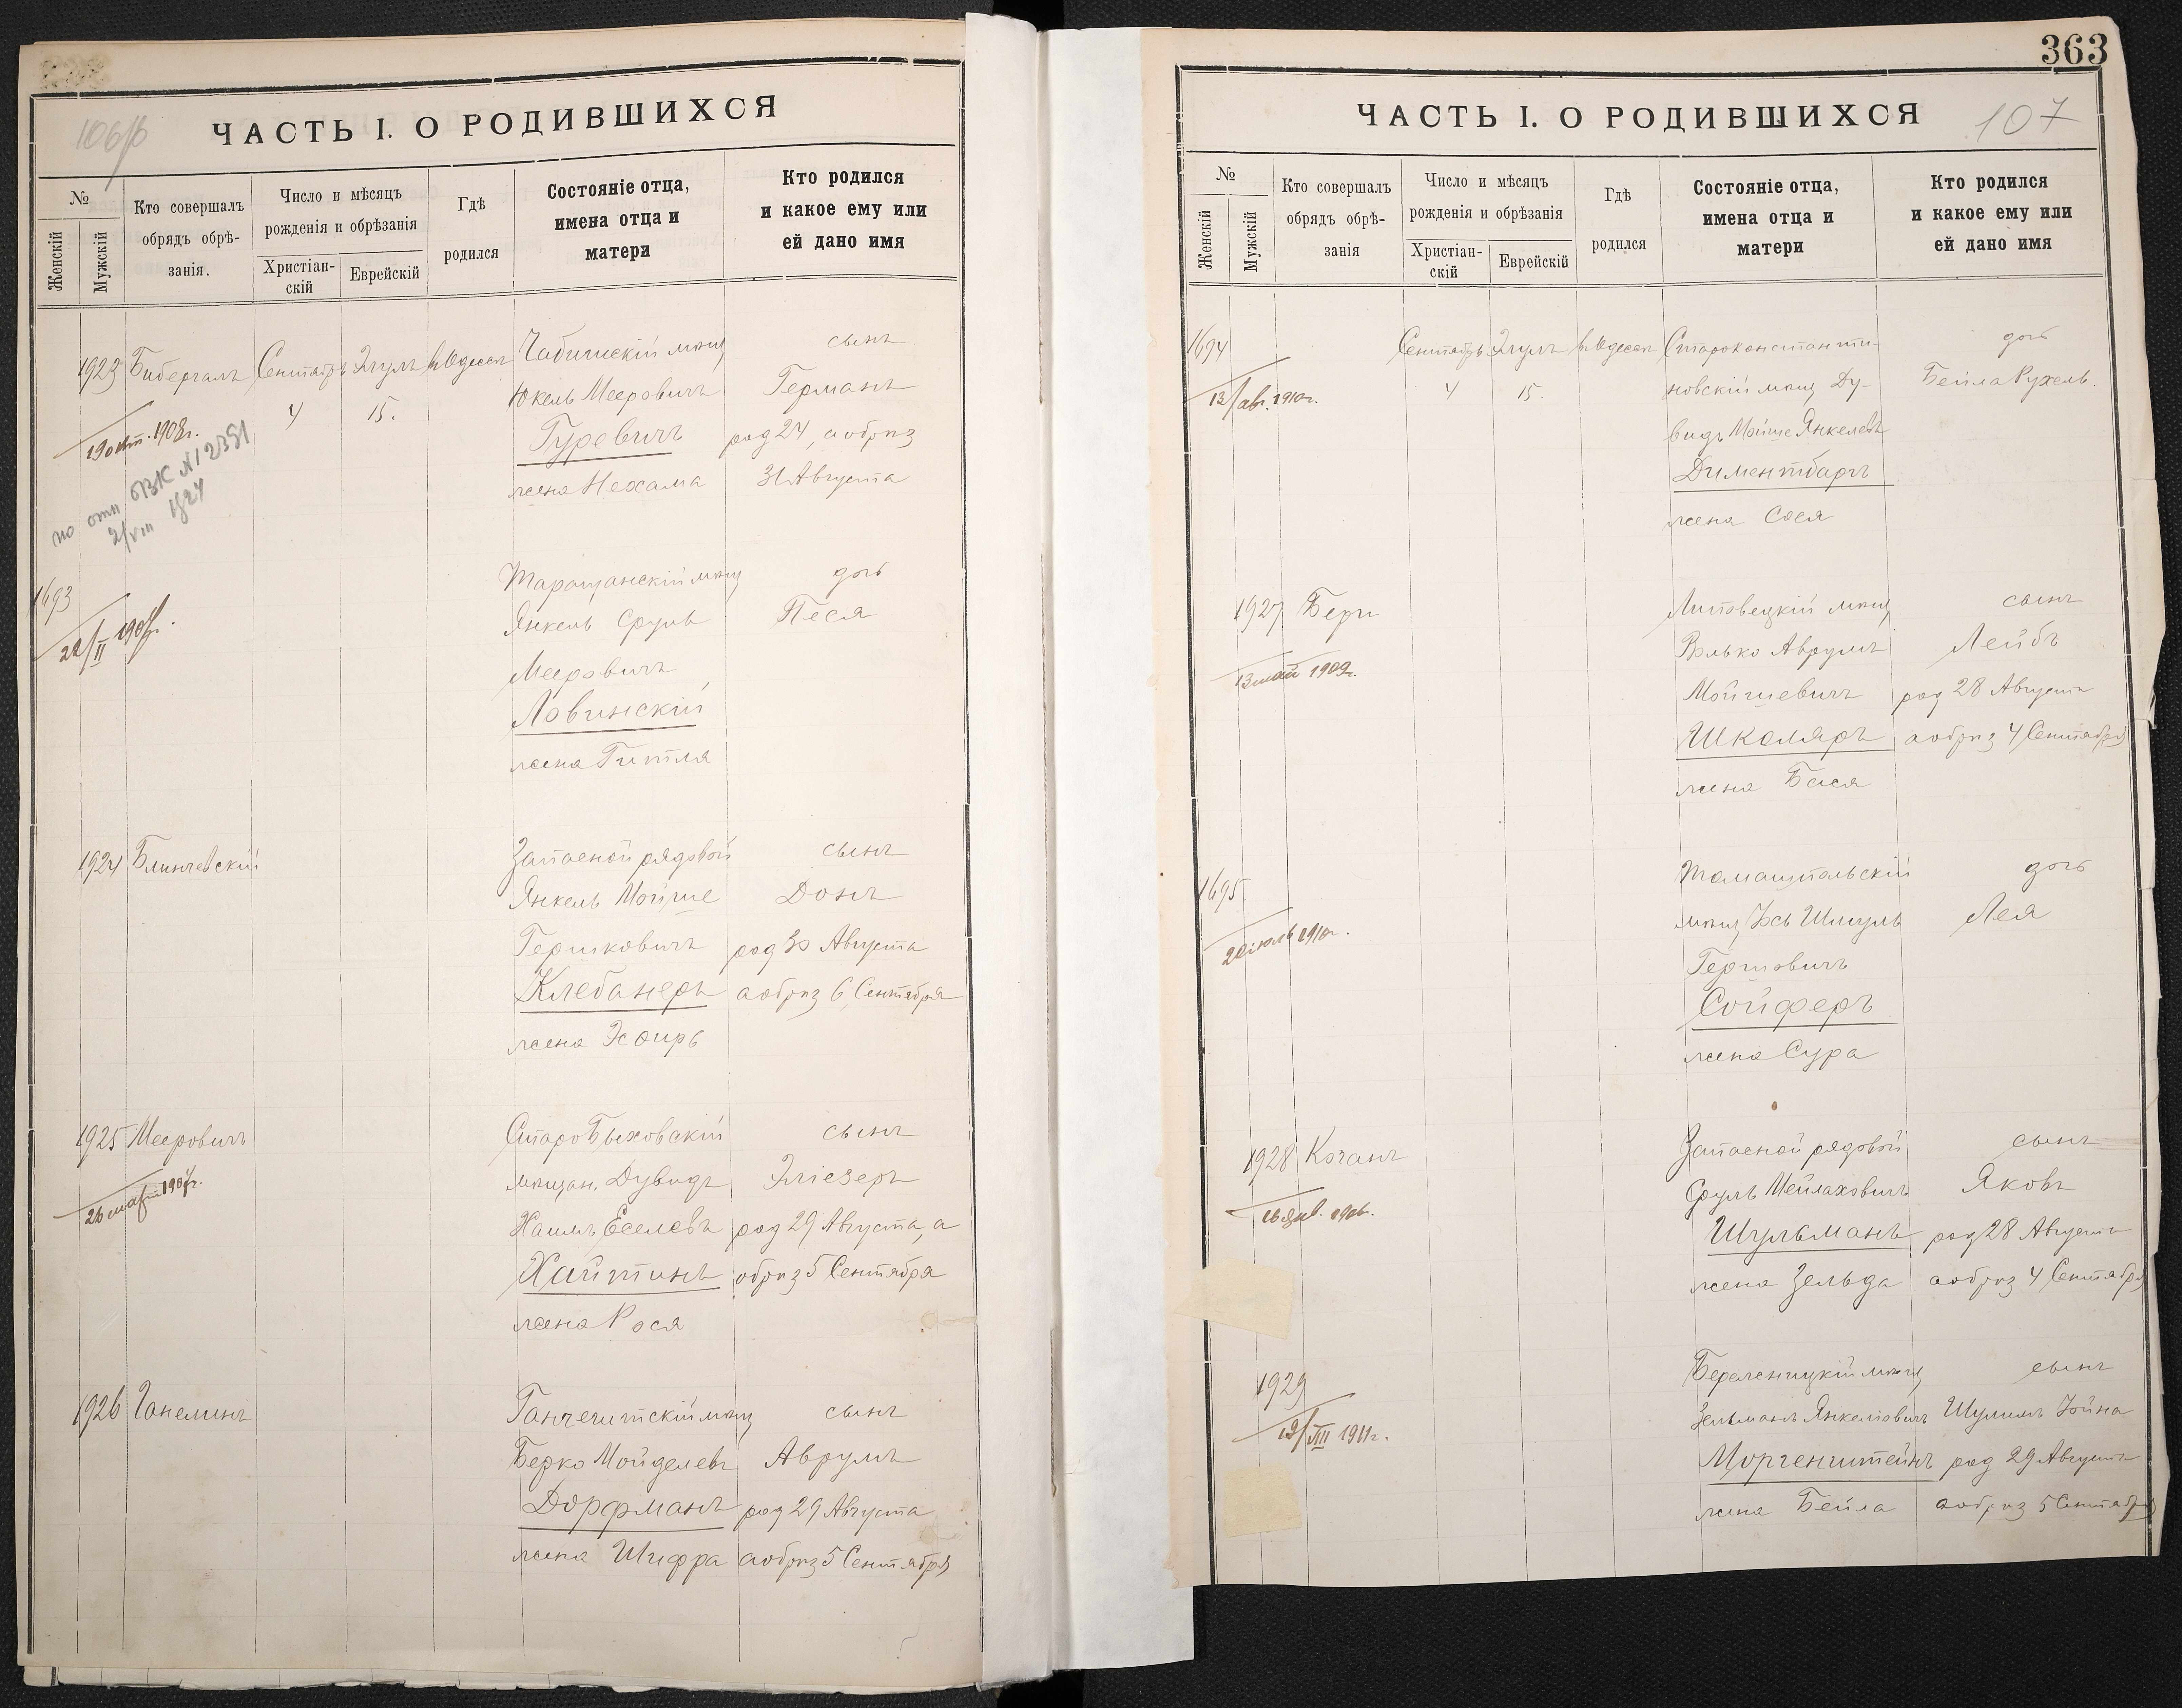 106/б
ЧАСТЬ I. О РОДИВШИХСЯ
№
Женскій
Мужскій
Кто совершалъ
обрядъ обрѣ-
занія.
Число и мѣсяцъ
рожденія и обрѣзанія
Христіан-
скій
Еврейскій
Гдѣ
родился
Состояніе отца,
имена отца и
матери
Кто родился
и какое ему или
ей дано имя
1923 Бибергалъ Сентябрь Элулъ въ Одессѣ
4 15.
19 окт. 1908г.
по отн ВК № 12351
2/VIII 1924
мѣщ
Юкель Мееровичъ
Гуревичъ
жена Нехама
сынъ
Германъ
род 24, а обрѣз
31 Августа
1693
22/II
Таращанскій мѣщ
Янкель Сруль
Мееровичъ
Ловинскій
жена Гитля
дочь
Песя
1924 Блинчевскій
Запасной рядовой
Янкель Мойше
Гершковичъ
Клебанеръ
жена Эсфирь
сынъ
Донъ
род 30 Августа
а обрѣз 6 Сентября
1925 Мееровичъ
СтароБыховскій
мѣщан. Дувидъ
Хаимъ Еселевъ
Хайтинъ
жена Рося
сынъ
Эліезеръ
род 29 Августа, а
обрѣз 5 Сентября
1926 Ганелинъ
Ганчештскій мѣщ
Берко
Дорфманъ
жена Шифра
сынъ
Аврумъ
род 29 Августа
а обрѣз 5 Сентября
363
107
ЧАСТЬ I. О РОДИВШИХСЯ
№
Женскій
Мужскій
Кто совершалъ
обрядъ обрѣ-
занія
Число и мѣсяцъ
рожденія и обрѣзанія
Христіан-
скій
Еврейскій
Гдѣ
родился
Состояніе отца,
имена отца и
матери
Кто родился
и какое ему или
ей дано имя
1694
12/авг. 1910г.
Сентябрь Элулъ въ Одессѣ
4 15.
Староконстанти-
новскій мѣщ Ду-
видъ Мойше Янкелевъ
Диментбаръ
жена Сося
дочь
Бейла Рухель.
1927 Бери
13 май 1909г.
Липовецкій мѣщ
Волько Аврумъ
Мойшевичъ
Школяръ
жена Бася
сынъ
Лейбъ
род 28 Августа
а обрѣз 4 Сентября
1695
1910г.
Томашпольскій
мѣщ Іось Шмуль
Гершовичъ
Сойферъ
жена Сура
дочь
Лея
1928 Коганъ
16 янв. 1906г.
Запасной рядовой
Сруль Мейлаховичъ
Шульманъ
жена Зельда
сынъ
Яковъ
род 28 Августа
а обрѣз 4 Сентября
1929
19/VIII 1911г.
мѣщ
Зельманъ Янкеліовичъ
Моргенштейнъ
жена Бейла
сынъ
Шулимъ Іойна
род 29 Августа
а обрѣз 5 Сентября